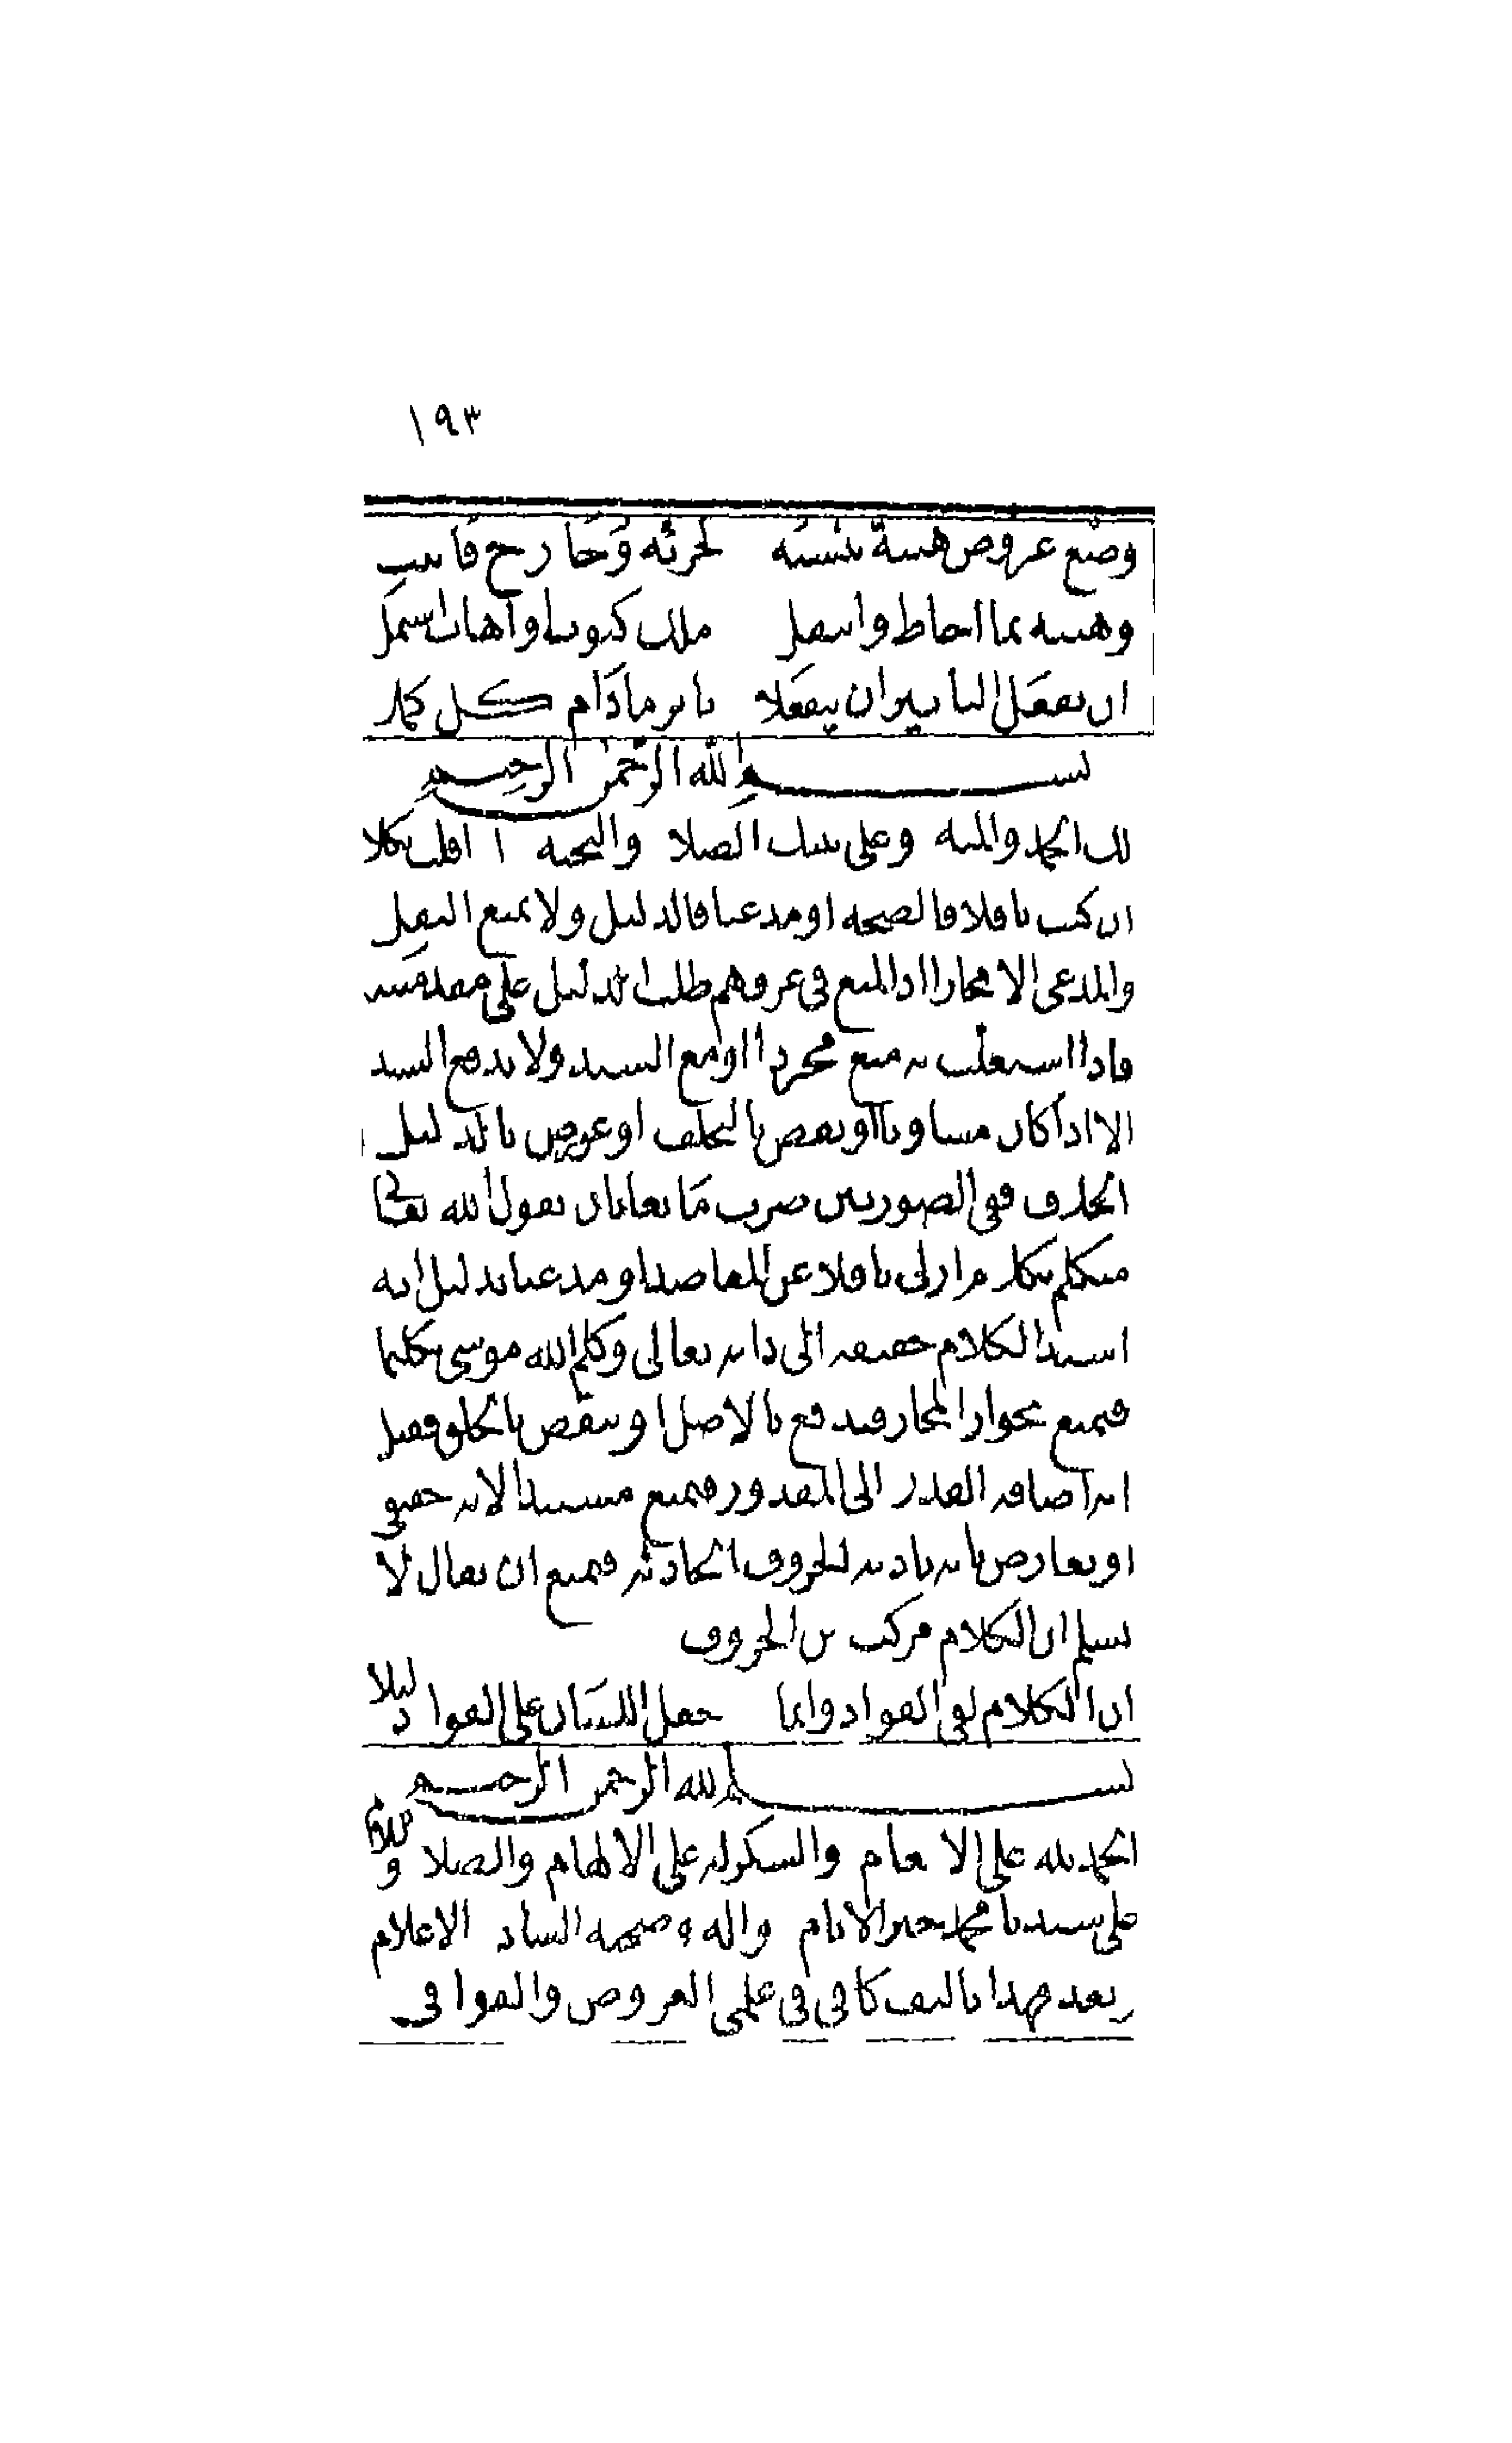 ١٩٣
وضع عروض هيئة بنسبه لجزئه وخارج فانتسب
وهيئة بما احاط وانتقل ملك كثوب او اهاب اشتمل
ان يفعل التاثير ان ينفعلا تاثر مادام كل كملا
بسم الله الرحمن الرحيم
لك الحمد والمنة وعلى نبيك الصلاة والتحية اذا قلت بكلام
ان كنت ناقلا فالصحة او مدعيا فالدليل ولا يمنع النقل
والمدعى الا مجازا اذ المنع في عرفهم طلب الدليل على مقدمته
فاذا اشتغلت به منع مجردا او مع السند ولا يدفع السند
الا اذا كان مساويا او نقض بالتخلف او عورض بالدليل
الخلاف ففي الصورتين صرت مانعا بان تقول الله تعالى
متكلم بكلام ازلي ناقلا عن المقاصد او مدعيا بدليل انه
اسند الكلام حقيقة الى ذاته تعالى وكلم الله موسى تكليما
فيمنع بجواز المجاز فيدفع بالاصل او ينقض بالخلق فقيل
انه اضافة القدرة الى المقدور فيمنع مستندا لانه حقيقي
او يعارض بانه تادية الحروف الحادثة فيمنع ان يقال لا
نسلم ان الكلام مركب من الحروف
ان الكلام لفي الفواد وانما جعل اللسان على الفواد دليلا
بسم الله الرحمن الرحيم
الحمد لله على الانعام والشكر له على الالهام والصلاة والسلام
على سيدنا محمد خير الانام واله وصحبه السادة الاعلام
وبعد فهذا تاليف كافي في علمي العروض والقوافي